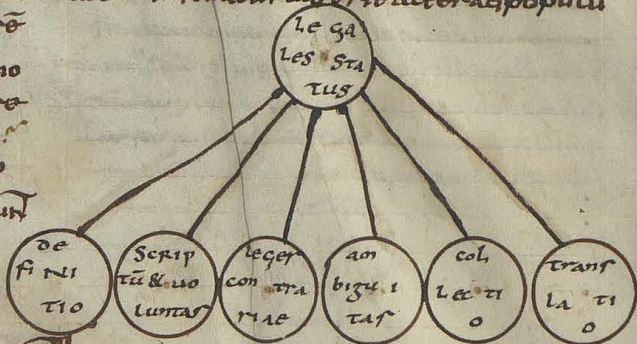 le ga
les sta
tus
de
fi ni
tio
scrip
tū & uo
luntas
leges
con tra
riae
am
bigu i
tas
col
lec ti
o
trans
la ti
o